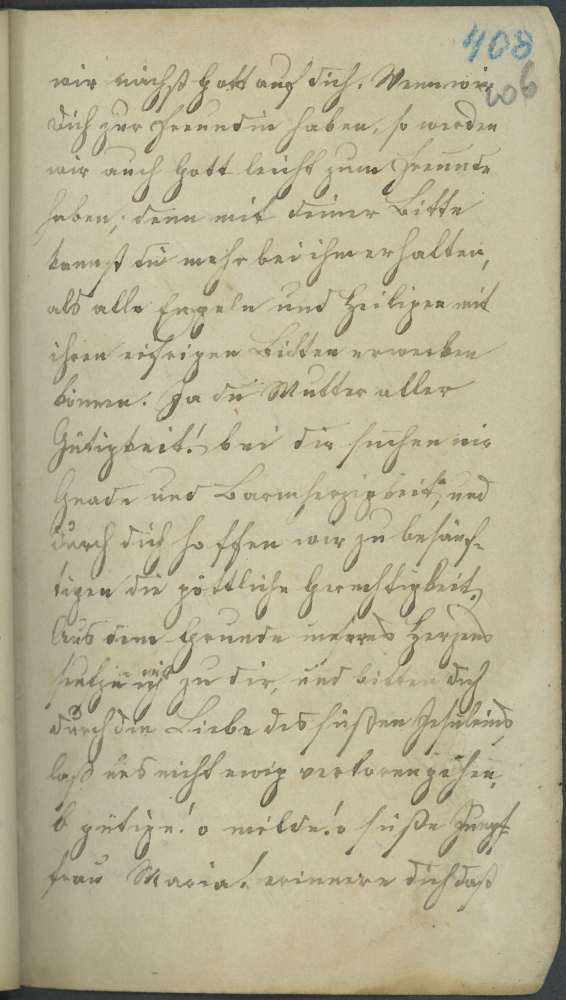 408
206
wir nächst Gott auf dich. Wenn wir
dich zur Freundin haben, so werden
wir auch Gott leicht zum Freunde
haben; denn mit deiner Bitte
kannst du mehr bei ihm erhalten,
als alle Engeln und Heiligen mit
ihren eifrigen Bitten erwerben
können. Ja du Mutter aller
Gütigkeit! bei dir suchen wir
Gnade und Barmherzigkeit, und
durch dich hoffen wir zu besänf-
tigen die göttliche Gerechtigkeit.
Aus dem Grunde unseres Herzens
seufzen wir zu dir, und bitten dich
durch die Liebe des süßen Jesuleins
laß uns nicht ewig verloren gehen,
O gütige! o milde! o süße Jungf-
frau Maria! erinnere dich daß